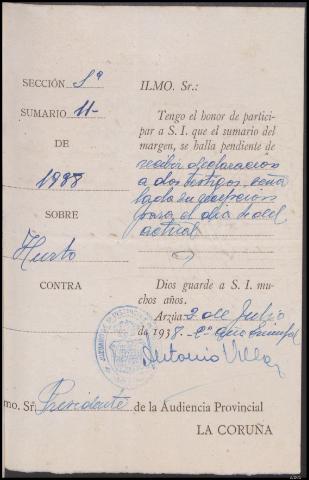 SECCIÓN 1ª
SUMARIO 11-
DE
1938
SOBRE
Hurto
CONTRA
ILMO. Sr.:
Tengo el honor de partici-
par a S. I. que el sumario del
margen, se halla pendiente de
recibir declaracion
a dos testigos, seña
lada su recepcion
para el dia del
actual
Dios guarde a S. I. mu-
chos años.
Arzúa 2 de Julio
de 1938. 2º año triunfal
Antonio Villar
mo. Sr. Presidente de la Audiencia Provincial
LA CORUÑA